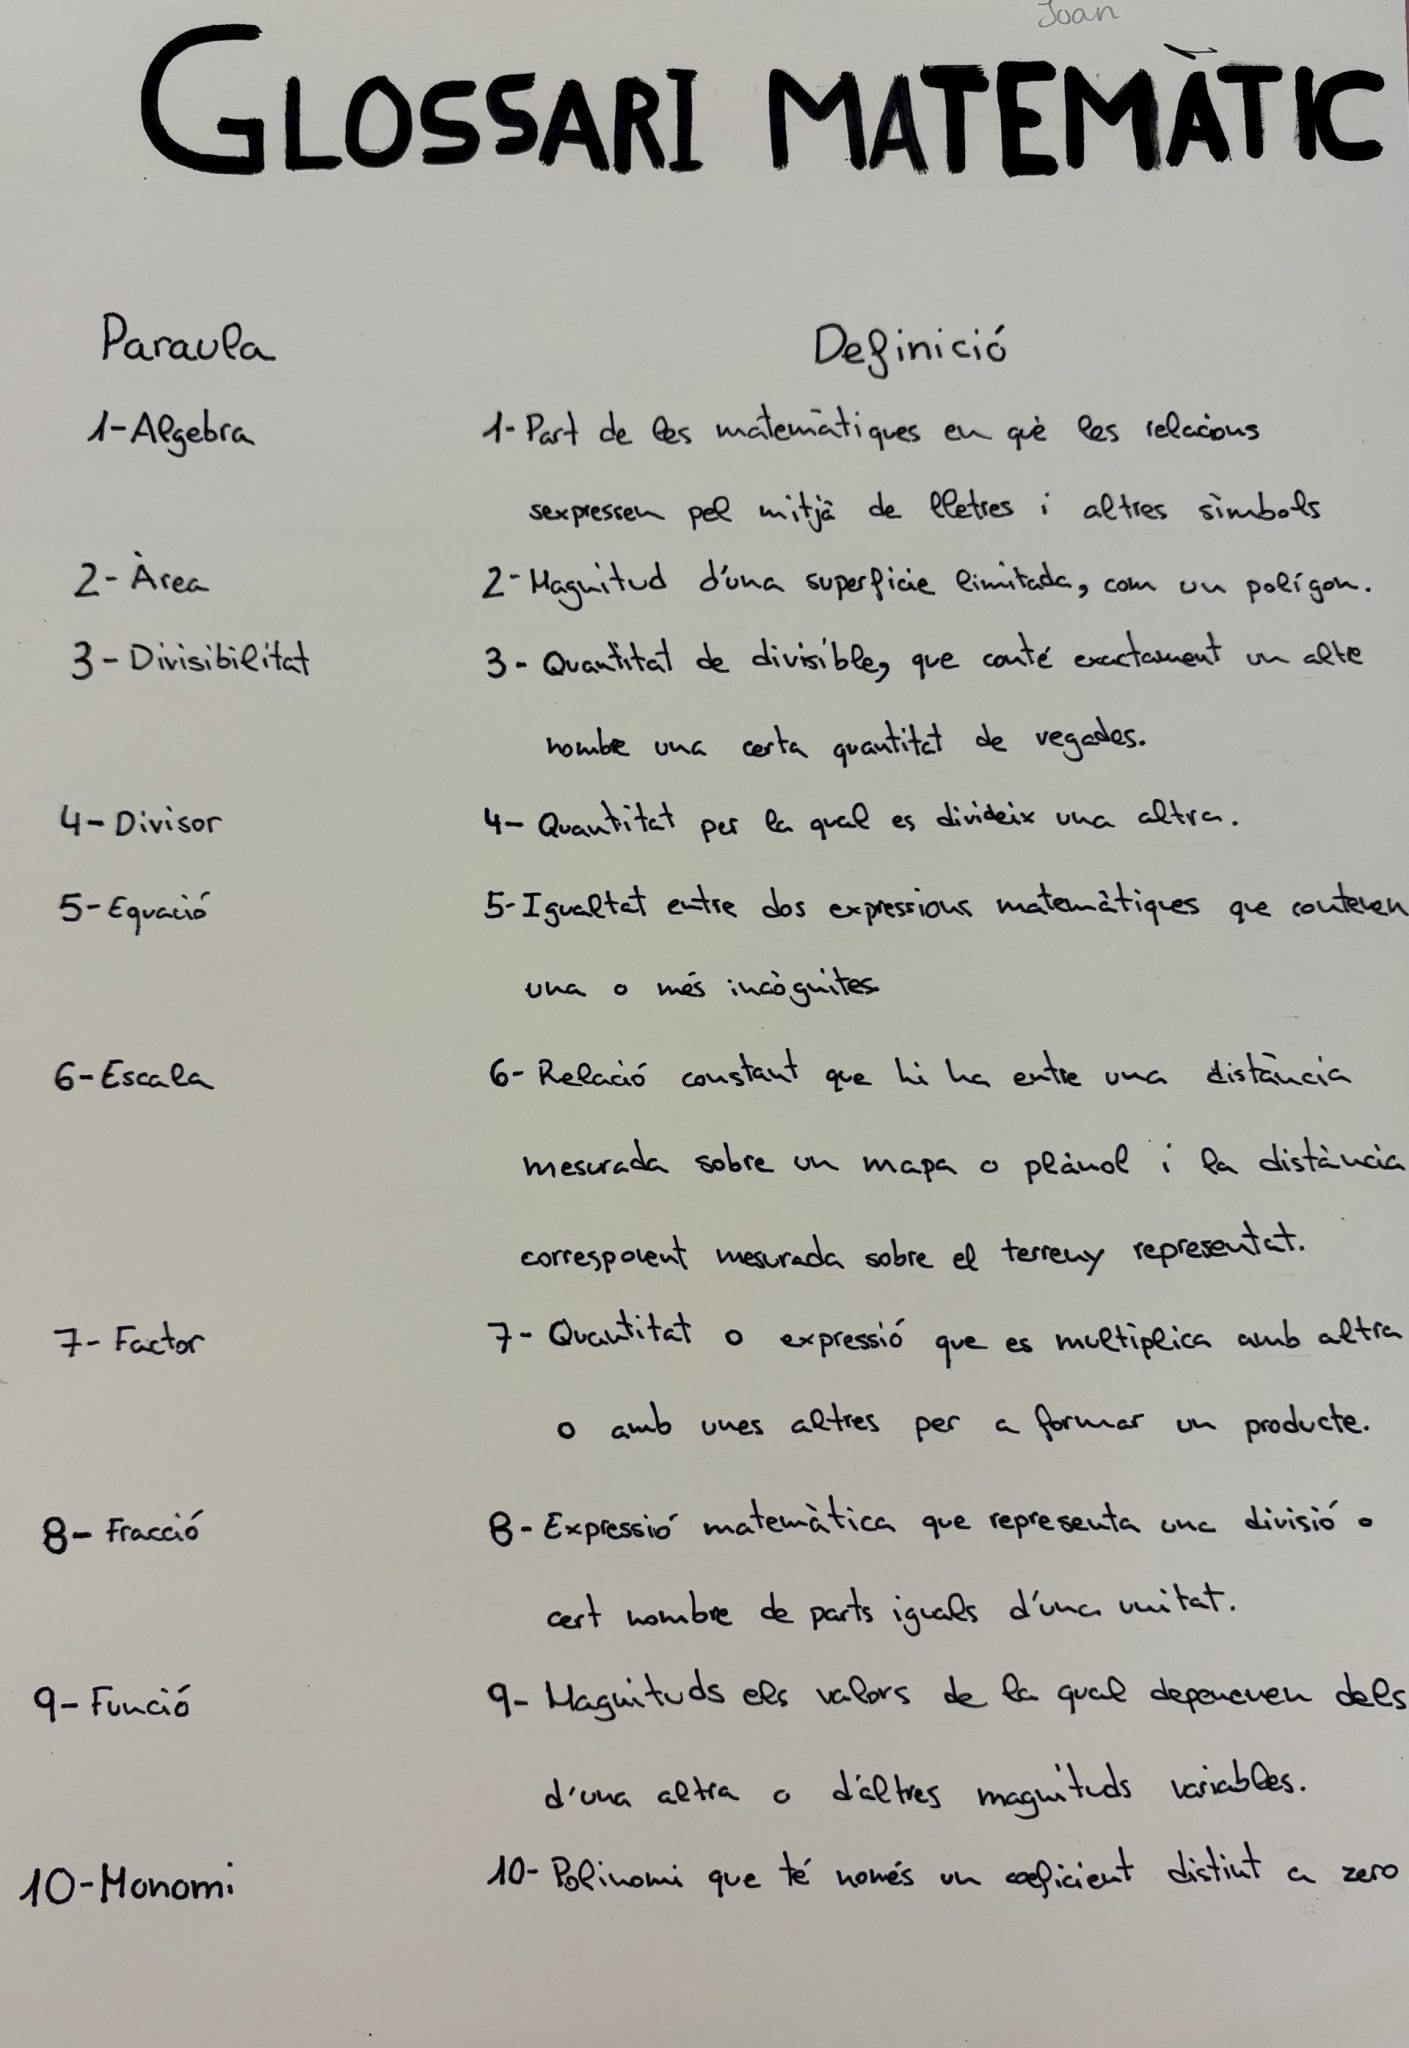 Joan
GLOSSARI MATEMÀTIC
Paraula Definició
1-Algebra 1-Part de les matemàtiques en què les relacions
sexpressen pel mitjà de lletres i altres sìmbols
2-Àrea 2-Magnitud d'una superficie limitada, com un polígon.
3-Divisibilitat 3-Quantitat de divisible, que conté exactament un alte
nombre una certa quantitat de vegades.
4-Divisor 4-Quantitat per la qual es divideix una altra.
5-Equació 5-Igualtat entre dos expressions matemàtiques que contenen
una o més incògnites.
6-Escala 6-Relació constant que hi ha entre una distància
mesurada sobre un mapa o plànol i la distància
corresponent mesurada sobre el terreny representat.
7-Factor 7-Quantitat o expressió que es multiplica amb altra
o amb unes altres per a formar un producte.
8-Fracció 8-Expressió matemàtica que representa una divisió o
cert nombre de parts iguals d'una unitat.
9-Funció 9-Magnituds els valors de la qual depenenen dels
d'una altra o d'altres magnituds variables.
10-Monomi 10-Polinomi que té només un coeficient distint a zero